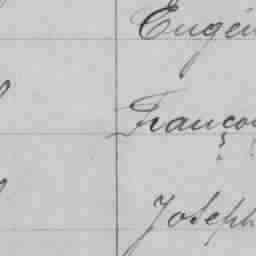 Eugén
Françoi
Joseph